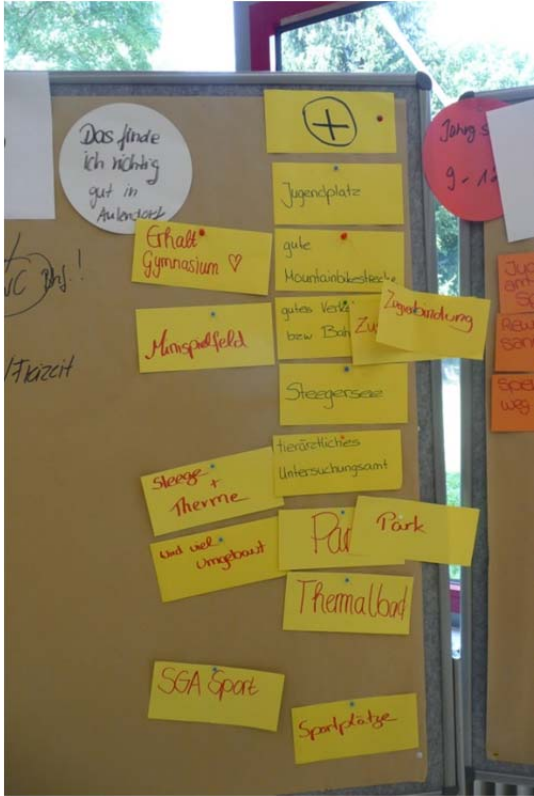 Das finde
ich richtig
gut in
Aulendorf
+
Jugendplatz
Erhalt
Gymnasium ♡
gute
Mountainbikestrecke
gutes
bzw.
Zuganbindung
Minispielfeld
Steegersee
tierärztliches
Untersuchungsamt
Steege
+
Therme
und viel
umgebaut
Par
Park
Thermalbad
SGA Sport
Sportplätze
WC Bhf!
/Freizeit
Jahrg
9-12